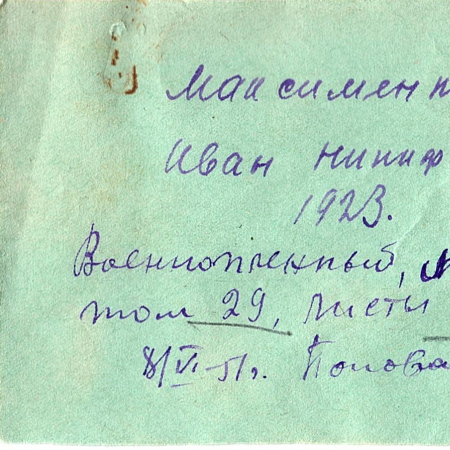 Максимен
Иван Никиф
1923.
Военнопленный,
том 29, листы
8/VI-51г. Попова